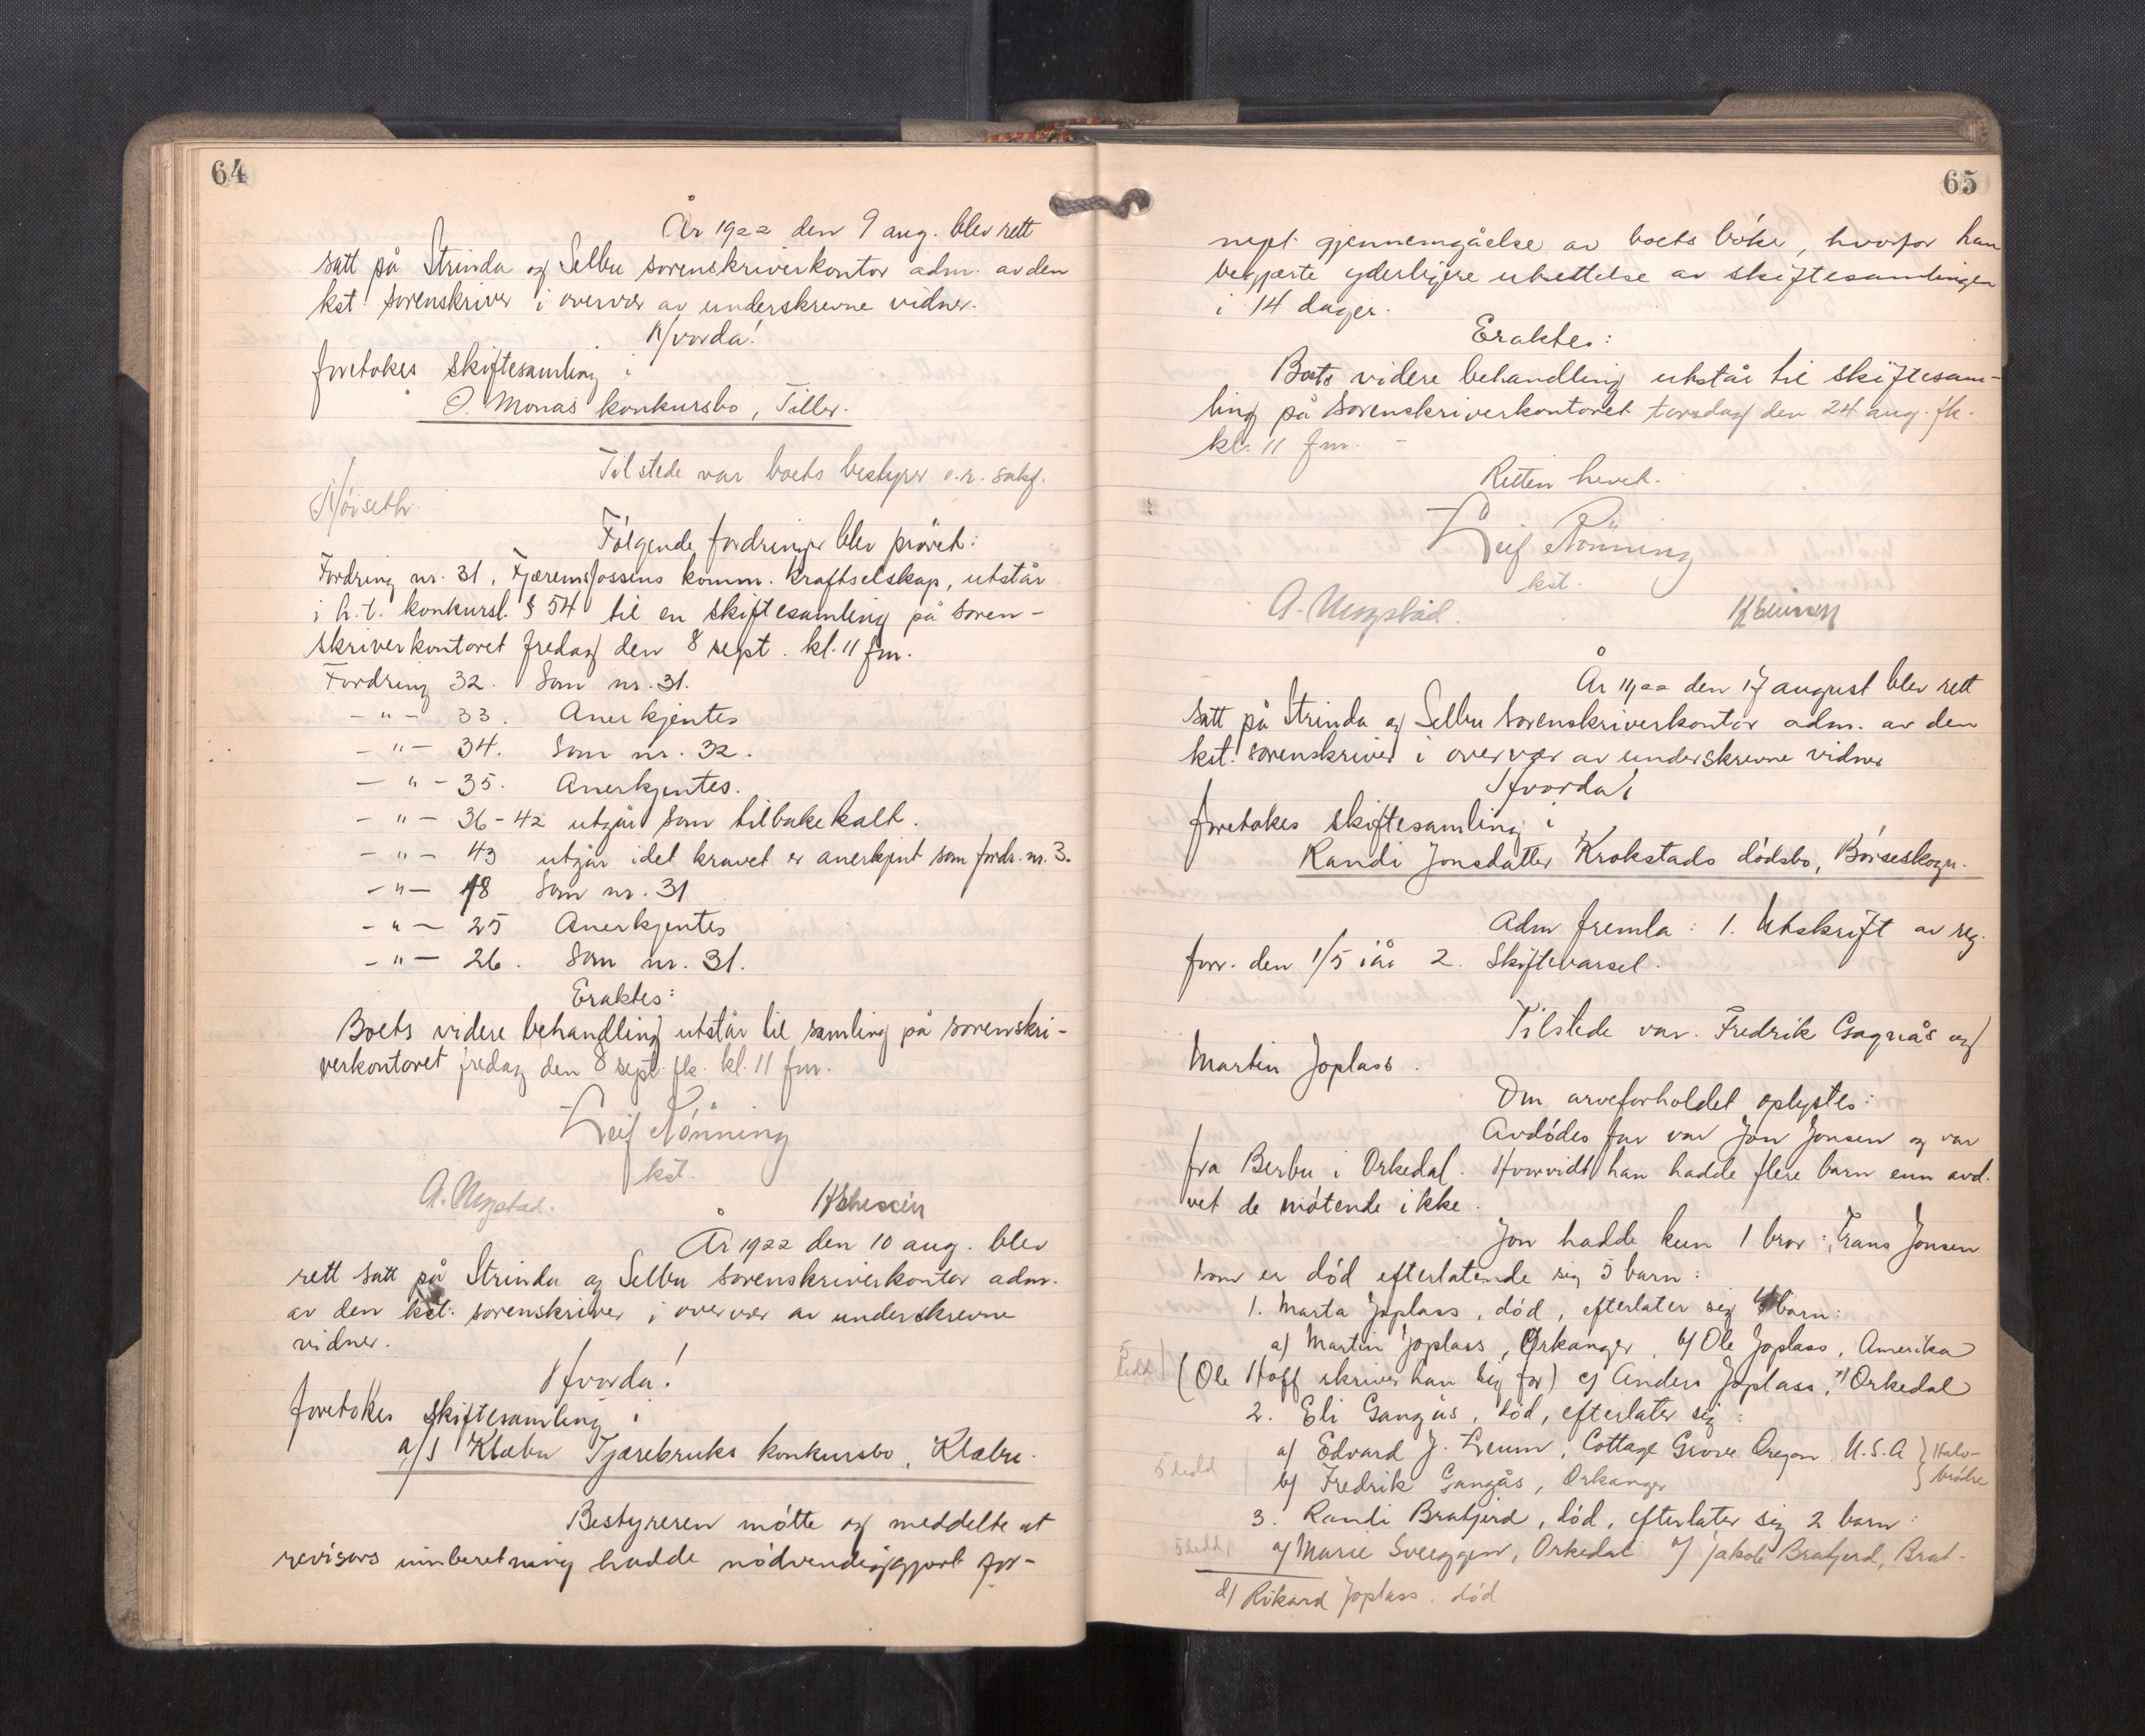 64
År 1922 den 9 aug. blev rett
satt på Strinda og Selbu sorenskriverkontor adm. av den
kst. sorenskriver i overvær av underskrevne vidner.
Hvorda!
foretokes skiftesamling i
O. Monas konkursbo, Tiller.
Tilstede var boets bestyrer o.r. sakf.
Høiseth.
Følgende fordringer blev prøvet:
Fordring nr. 31, Fjæremsfossens komm. kraftselskap, utstår
i h.t. konkursl. § 54 til en skiftesamling på soren-
skriverkontoret fredag den 8 sept. kl. 11 fm.
Fordring 32. Som nr. 31.
- " - 33. Anerkjentes
- " - 34. Som nr. 32.
- " - 35. Anerkjentes.
- " - 36-42 utgår som tilbakekalt.
- " - 43 utgår idet kravet er anerkjent som fordr. nr. 3.
- " - 18 Som nr. 31
- " - 25 Anerkjentes
- " - 26. Som nr. 31.
Eraktes:
Boets videre behandling utstår til samling på sorenskri-
verkontoret fredag den 8 sept. fk. kl. 11 fm.
Leif Rønning
kst.
A. Ungstad.
År 1922 den 10 aug. blev
rett satt på Strinda og Selbu sorenskriverkontor adm.
av den kst. sorenskriver i overvær av underskrevne
vidner.
Hvorda!
foretokes skiftesamling i
a/s Klæbu Tjærebruks konkursbo, Klæbu.
Bestyreren møtte og meddelte at
revisors innberetning hadde nødvendiggjort for-
65
nept gjennemgåelse av boets bøker, hvorfor han
begjærte yderligere utsettelse av skiftesamlingen
i 14 dager.
Eraktes:
Boets videre behandling utstår til skiftesam-
ling på sorenskriverkontoret torsdag den 24 aug. fk.
kl. 11 fm. -
Retten hevet.
Leif Rønning
kst.
A. Ungstad.
År 1922 den 17 august blev rett
satt på Strinda og Selbu sorenskriverkontor adm. av den
kst. sorenskriver i overvær av underskrevne vidner
Hvorda!
foretokes skiftesamling i
Randi Jonsdatter Krokstads dødsbo, Børseskogn.
Adm fremla: 1. Utskrift av reg.
forr. den 1/5 iår 2. Skiftevarsel.
Tilstede var Fredrik Gagnås og
Martin Joplass.
Om arveforholdet oplystes:
Avdødes far var Jon Jonsen og var
fra Berbu i Orkedal. Hvorvidt han hadde flere barn enn avd.
vet de møtende ikke.
Jon hadde kun 1 bror: Frans Jonsen
som er død efterlatende sig 5 barn:
1. Marta Joplass, død, efterlater sig 4 barn:
a) Martin Joplass, Orkanger, b) Ole Joplass, Amerika
(Ole Hoff skriver han sig for) c) Anders Joplass, Orkedal
2. Eli Gangås, død, efterlater sig:
a) Edvard J. Leum, Cottage Grove Oregon U.S.A } Halv-
b) Fredrik Gangås, Orkanger } brødre
5 ledd
3. Randi Bratjerd, død, efterlater sig 2 barn:
5 ledd
a) Marie Sveeggen, Orkedal b) Jakob Bratjerd, Brat-
d) Rikard Joplass. død